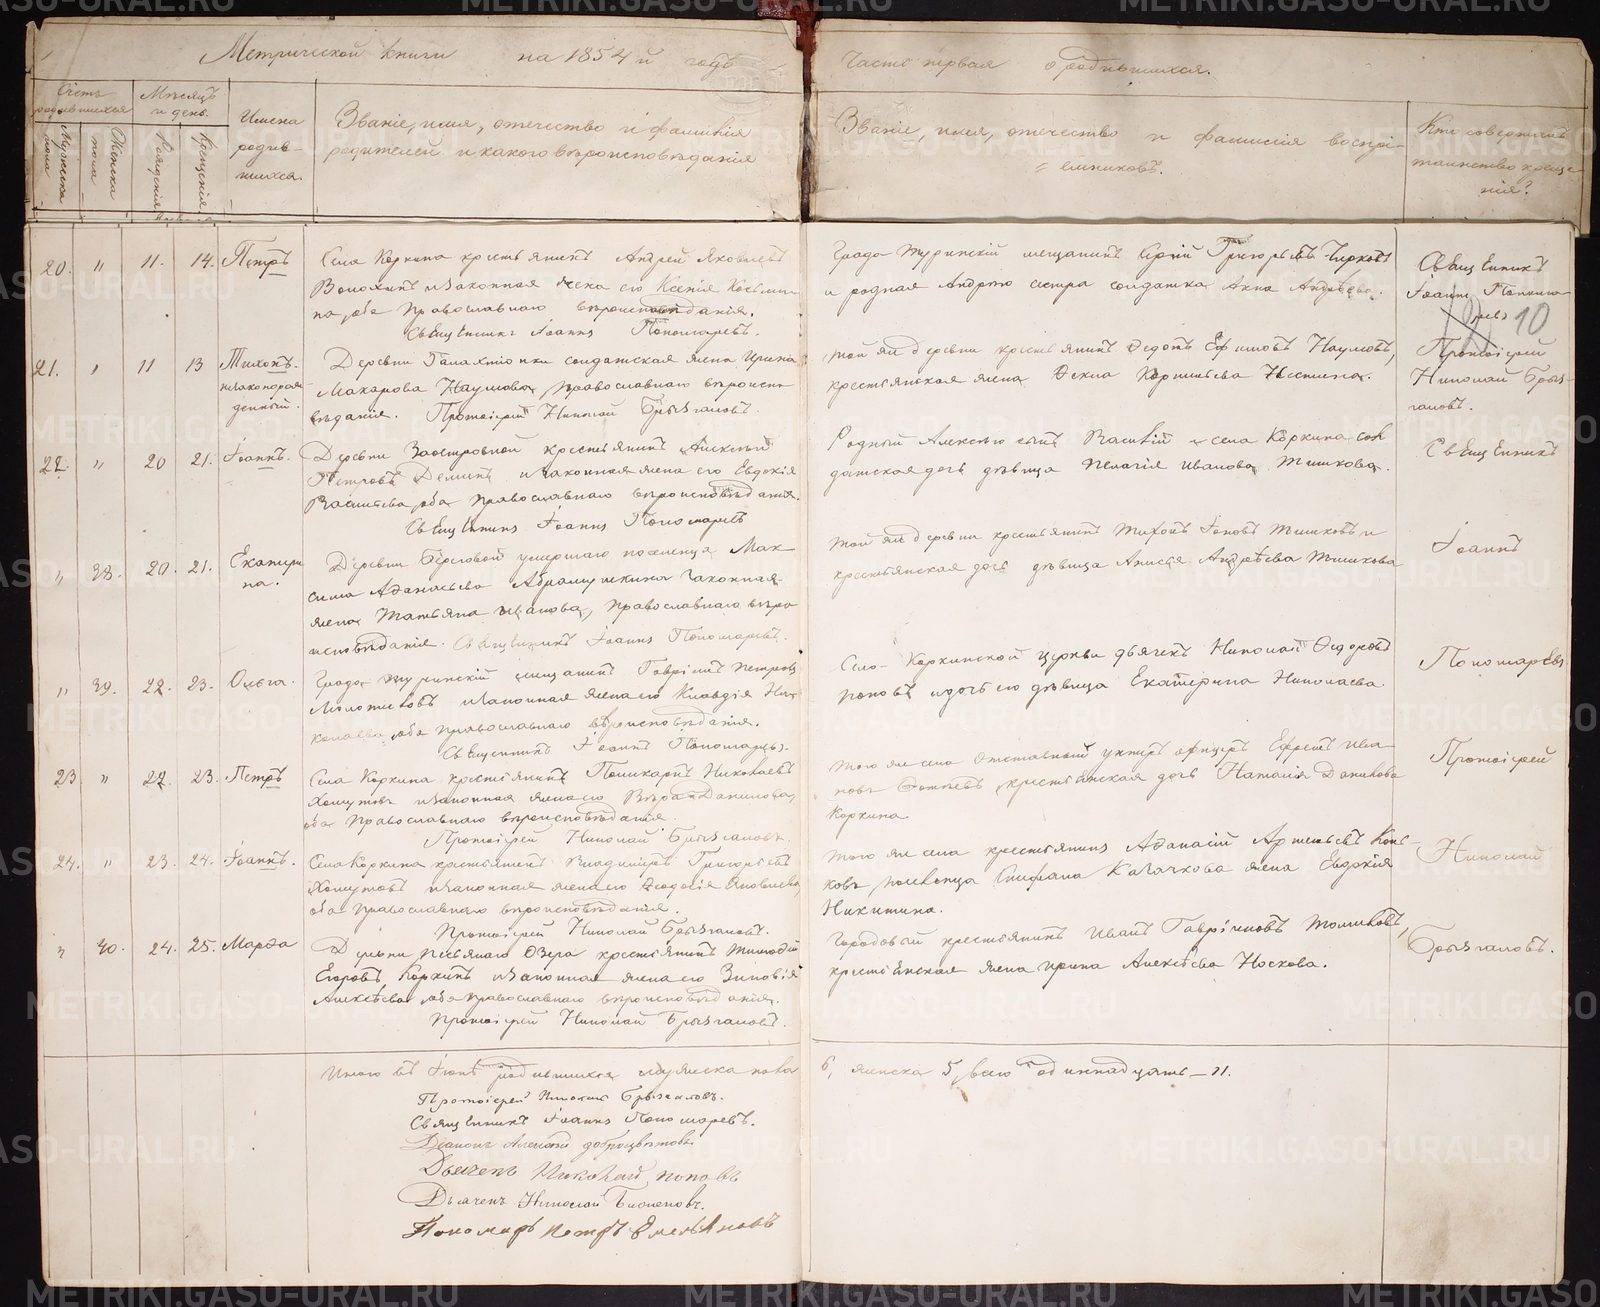 Метрической книги на 1854й годъ
Часть первая о родившихся.
Счетъ родившихся
Мужеска пола
Женска пола
Мѣсяцъ и день.
Рожденія
Крещенія
Имена родив-
шихся.
Званіе, имя, отечество и фамилія
родителей и какого вѣроисповѣданія
Званіе, имя, отечество и фамилія воспрі-
емниковъ.
Кто совершалъ
таинство креще-
нія?
20. " 11. 14. Петръ
Села Коркина крестьянинъ Андрей Яковлевъ
Волохинъ и законная жена его Ксенія Косьми-
на, оба Православнаго вѣроисповѣданія.
Священникъ Іоаннъ Пономаревъ.
Града Туринскій мещанинъ Григорьевъ Чирковъ
и родная Андрею сестра солдатка Анна Андреева.
Священникъ
Іоаннъ Понома-
ревъ
10
21. " 11 13 Тихонъ.
незаконорож-
денный.
Деревни Галактіонки солдатская жена Ирина
Макарова Наумова, православнаго вѣроиспо-
вѣданія. Протоіерей Николай Брызгаловъ.
той же деревни крестьянинъ Ѳедотъ Ефимовъ Наумовъ,
крестьянская жена Ѳекла
Протоіерей
Николай Брыз-
галовъ.
22. " 20 21. Іоаннъ.
Деревни Заостровной крестьянинъ Алексѣй
Петровъ Деминъ и законная жена его Евдокія
Васильева, оба Православнаго вѣроисповѣданія.
Священникъ Іоаннъ Пономаревъ
Родный Алексѣю сынъ Василій и села Коркина сол-
датская дочь дѣвица Пелагія Иванова Тишкова.
Священникъ
" 38. 20. 21. Екатери-
на.
Деревни Береговой умершаго поселенца Мак-
сима Аѳанасьева Абрамушкина законная
жена Татьяна Иванова, Православнаго вѣро-
исповѣданія. Священникъ Іоаннъ Пономаревъ.
той же деревни крестьянинъ Тихонъ Іоновъ Тишковъ и
крестьянская дочь дѣвица Анисья Андрѣева Тишкова
Іоаннъ
" 39. 22. 23. Ольга.
Града туринскій мещанинъ Гавріилъ Петровъ
Молотиловъ и законная жена его Клавдія Ни-
колаева, оба Православнаго вѣроисповѣданія.
Священникъ Іоаннъ Пономаревъ.
Село-Коркинской церкви дьячекъ Николай Ѳедоровъ
Поповъ и дочь его дѣвица Екатерина Николаева
Пономаревъ
23. " 22. 23. Петръ
Села Коркина крестьянинъ Поликарпъ Николаевъ
Хомутовъ и законная жена его Вѣра Данилова,
оба Православнаго вѣроисповѣданія.
Протоіерей Николай Брызгаловъ.
того же села Отставный унтеръ офицеръ Ефремъ Ива-
новъ крестьянская дочь Наталія Данилова
Коркина
Протоіерей
24. " 23. 24. Іоаннъ.
Села Коркина крестьянинъ Владиміръ Григорьевъ
Хомутовъ и законная жена его Ѳеодосія Яковлева
оба Православнаго вѣроисповѣданія.
Протоіерей Николай Брызгаловъ.
того же села крестьянинъ Аѳанасій Артемьевъ Коть-
ковъ, поселенца Стефана Казачкова жена Евдокія
Никитина.
Николай
" 40. 24. 25. Марѳа
Деревни Песьянаго Озера крестьянинъ Тимоѳей
Егоровъ Коркинъ и законная жена его Зиновія
Алексѣева, оба Православнаго вѣроисповѣданія.
Протоіерей Николай Брызгаловъ.
Городовый крестьянинъ Иванъ Гавриловъ Томиловъ,
крестьянская жена Ирина Алексѣева Носкова.
Брызгаловъ.
Итого въ Іюнѣ родившихся Мужеска пола
6, женска 5, всего одиннадцать - 11.
Протоіерей Николай Брызгаловъ.
Священникъ Іоаннъ Пономаревъ.
Діаконъ Алексѣй Доброцвѣтовъ.
Дьячекъ Николай Поповъ
Дьячекъ Николай
Пономарь Петръ Емельяновъ
METRIKI.GASO-URAL.RU